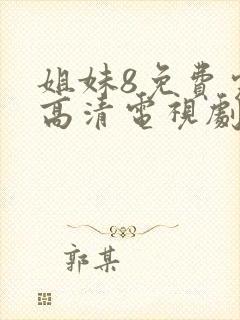 姐妹8免費
高清電視劇
郭某